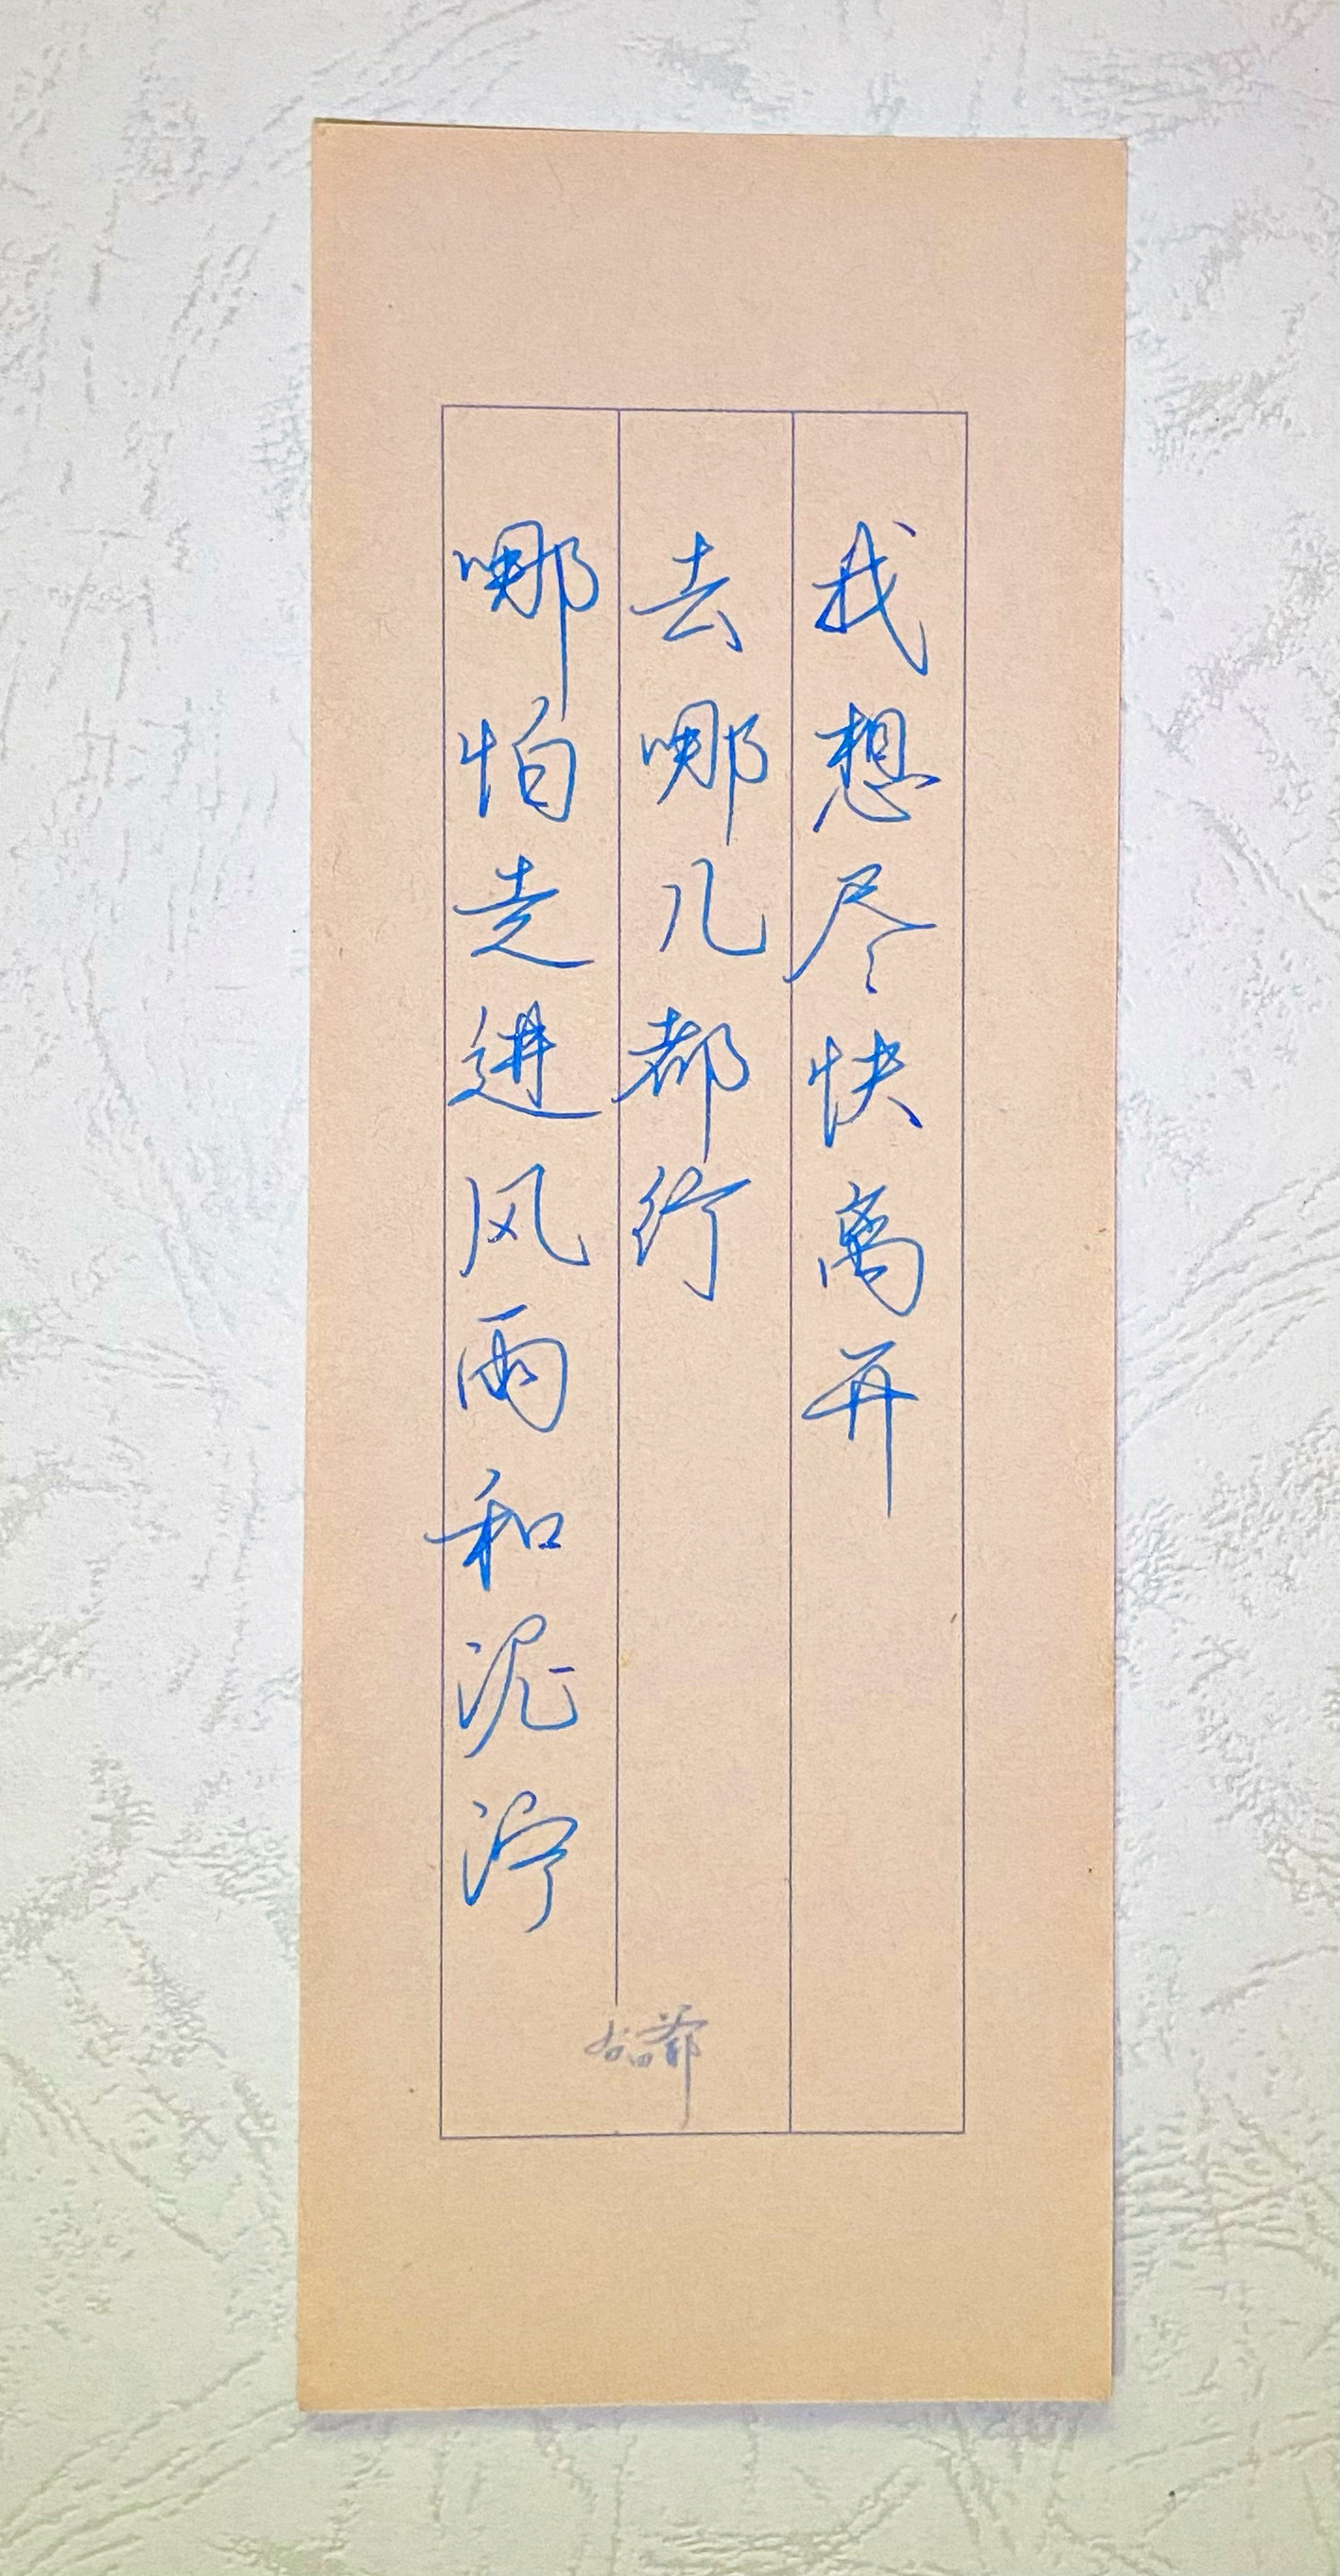 我想尽快离开
去哪儿都行
哪怕走进风雨和泥泞